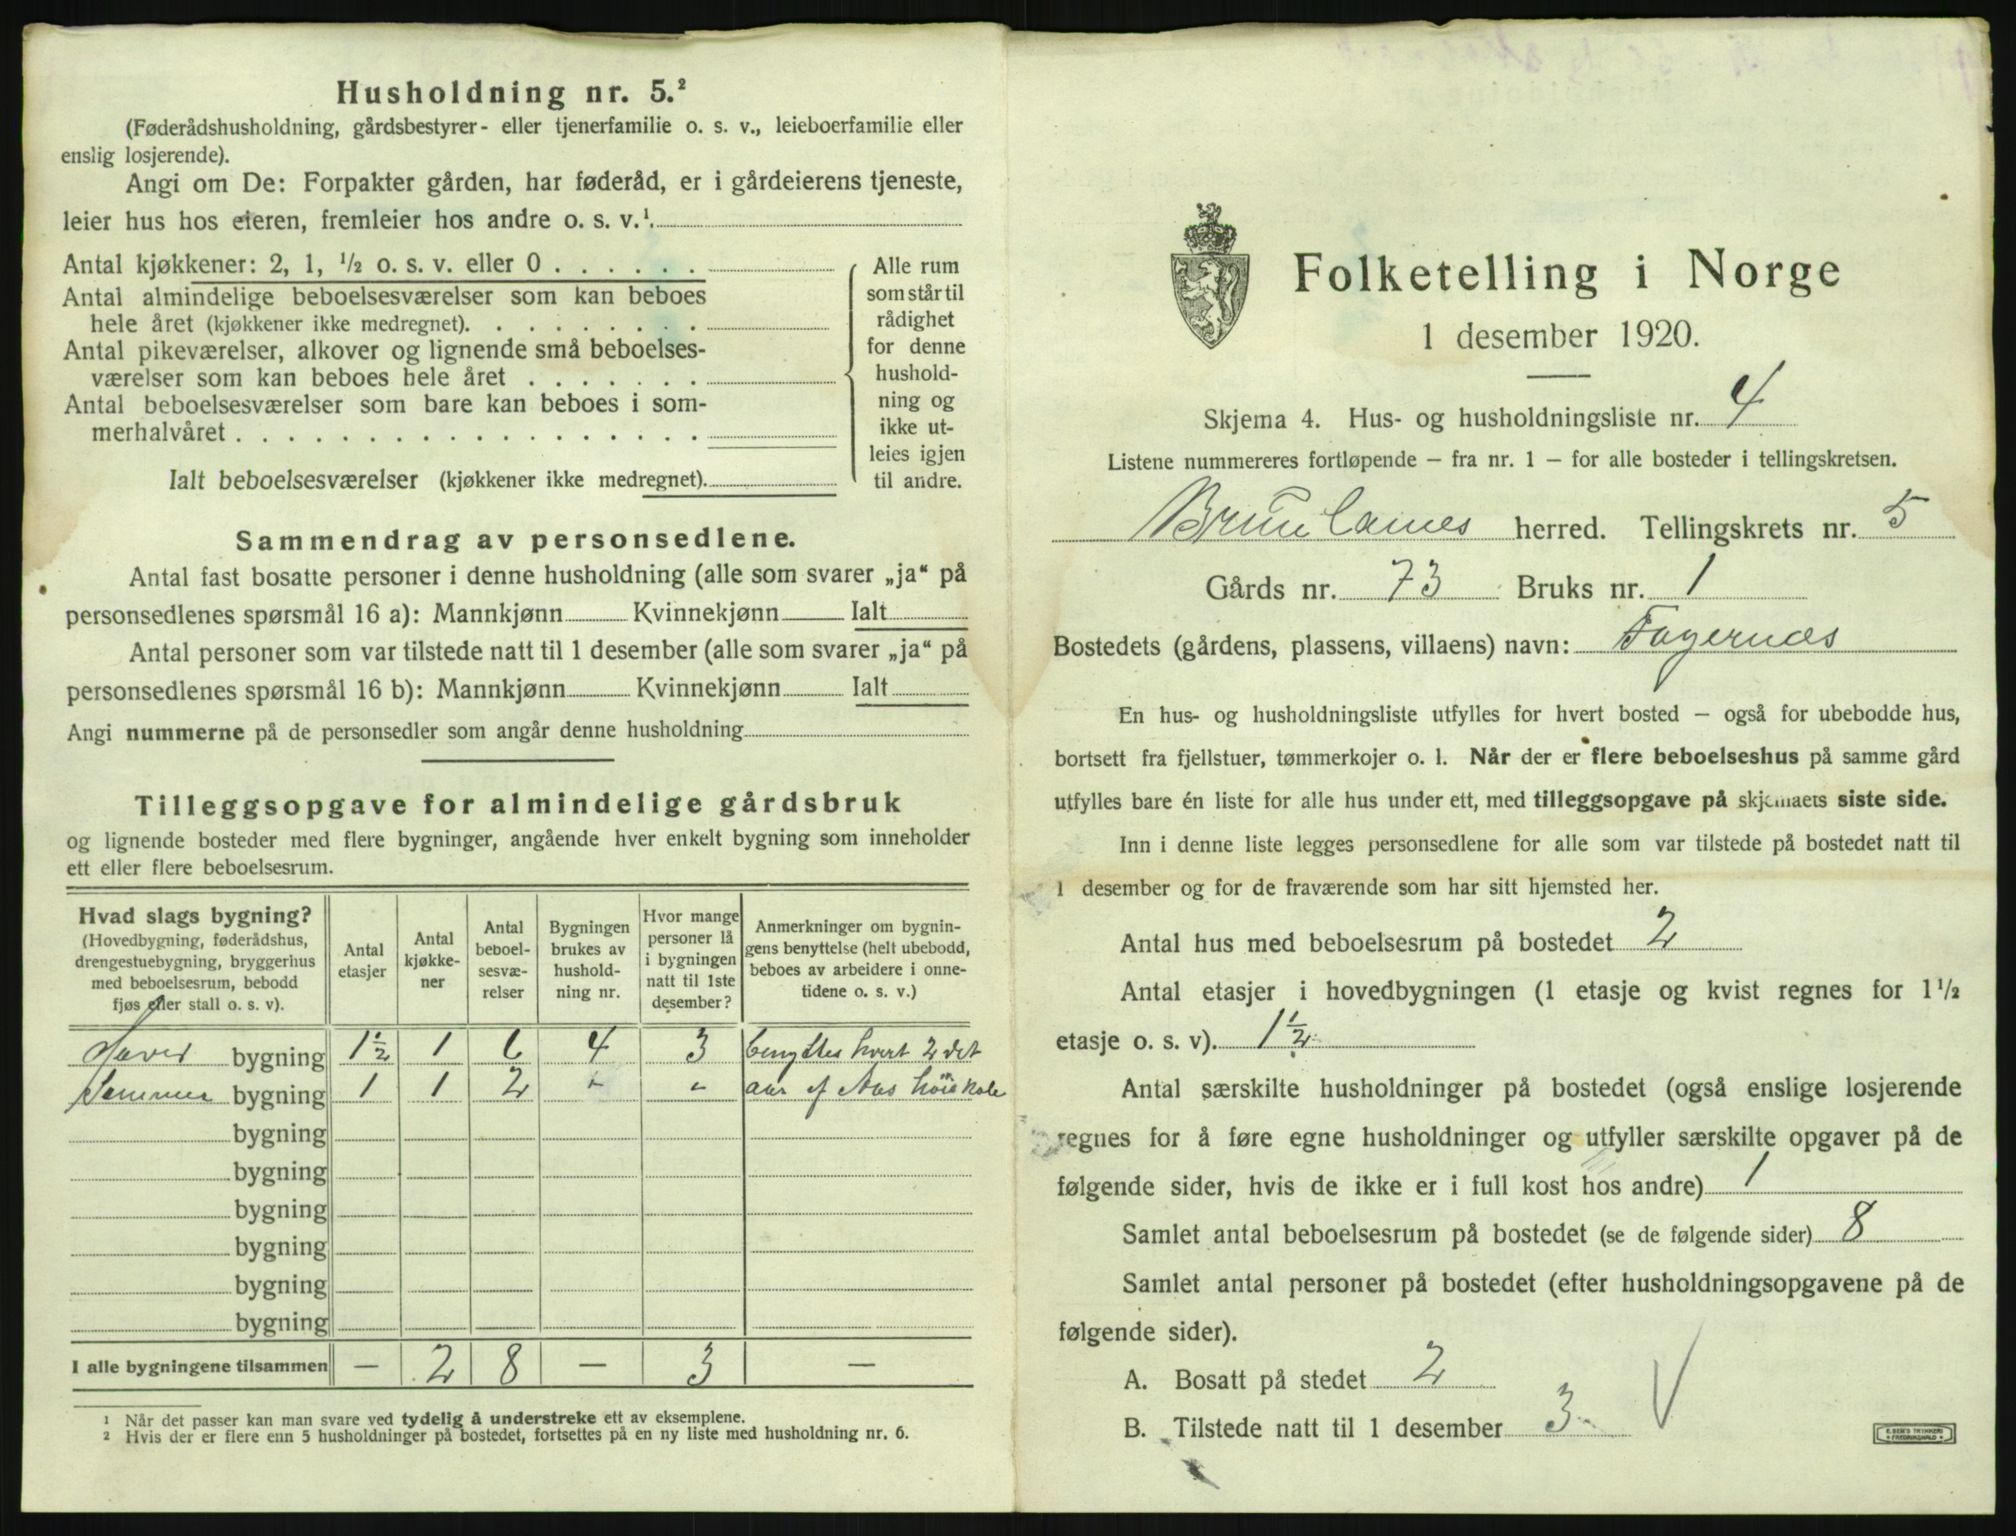 Husholdning nr. 5.²
(Føderådshusholdning, gårdsbestyrer- eller tjenerfamilie o. s. v., leieboerfamilie eller
enslig losjerende).
Angi om De: Forpakter gården, har føderåd, er i gårdeierens tjeneste,
leier hus hos eieren, fremleier hos andre o. s. v.¹
Antal kjøkkener: 2, 1, ½ o. s. v. eller 0 . . . . . .
Antal almindelige beboelsesværelser som kan beboes
hele året (kjøkkener ikke medregnet). . . . . . . . .
Antal pikeværelser, alkover og lignende små beboelses-
værelser som kan beboes hele året . . . . . . .
Antal beboelsesværelser som bare kan beboes i som-
merhalvåret . . . . . . . . . . . . . . . . . .
Ialt beboelsesværelser (kjøkkener ikke medregnet).
Alle rum
som står til
rådighet
for denne
hushold-
ning og
ikke ut-
leies igjen
til andre.
Sammendrag av personsedlene.
Antal fast bosatte personer i denne husholdning (alle som svarer „ja“ på
personsedlenes spørsmål 16 a): Mannkjønn Kvinnekjønn Ialt
Antal personer som var tilstede natt til 1 desember (alle som svarer „ja“ på
personsedlenes spørsmål 16 b): Mannkjønn Kvinnekjønn Ialt
Angi nummerne på de personsedler som angår denne husholdning
Tilleggsopgave for almindelige gårdsbruk
og lignende bosteder med flere bygninger, angående hver enkelt bygning som inneholder
ett eller flere beboelsesrum.
Hvad slags bygning?
(Hovedbygning, føderådshus,
drengestuebygning, bryggerhus
med beboelsesrum, bebodd
fjøs eller stall o. s. v).
Antal
etasjer
Antal
kjøkke-
ner
Antal
beboel-
sesvæ-
relser
Bygningen
brukes av
hushold-
ning nr.
Hvor mange
personer lå
i bygningen
natt til 1ste
desember?
Anmerkninger om bygnin-
gens benyttelse (helt ubebodd,
beboes av arbeidere i onne-
tidene o. s. v.)
Hoved bygning 1½ 1 6 4 3 benyttes hvert 2det
Sommer bygning 1 1 2 - - aar af Aas höiskole
bygning
bygning
bygning
bygning
bygning
bygning
I alle bygningene tilsammen — 2 8 — 3 —
¹ Når det passer kan man svare ved tydelig å understreke ett av eksemplene.
² Hvis der er flere enn 5 husholdninger på bostedet, fortsettes på en ny liste med husholdning nr. 6.
Folketelling i Norge
1 desember 1920.
Skjema 4. Hus- og husholdningsliste nr. 4
Listene nummereres fortløpende — fra nr. 1 — for alle bosteder i tellingskretsen.
Brunlanes herred. Tellingskrets nr. 5
Gårds nr. 73 Bruks nr. 1
Bostedets (gårdens, plassens, villaens) navn: Fagernæs
En hus- og husholdningsliste utfylles for hvert bosted — også for ubebodde hus,
bortsett fra fjellstuer, tømmerkojer o. l. Når der er flere beboelseshus på samme gård
utfylles bare én liste for alle hus under ett, med tilleggsopgave på skjemaets siste side.
Inn i denne liste legges personsedlene for alle som var tilstede på bostedet natt til
1 desember og for de fraværende som har sitt hjemsted her.
Antal hus med beboelsesrum på bostedet 2
Antal etasjer i hovedbygningen (1 etasje og kvist regnes for 1½
etasje o. s. v). 1½
Antal særskilte husholdninger på bostedet (også enslige losjerende
regnes for å føre egne husholdninger og utfyller særskilte opgaver på de
følgende sider, hvis de ikke er i full kost hos andre) 1
Samlet antal beboelsesrum på bostedet (se de følgende sider) 8
Samlet antal personer på bostedet (efter husholdningsopgavene på de
følgende sider).
A. Bosatt på stedet 2
B. Tilstede natt til 1 desember 3
E. SEM'S TRYKKERI
FREDRIKSHALD